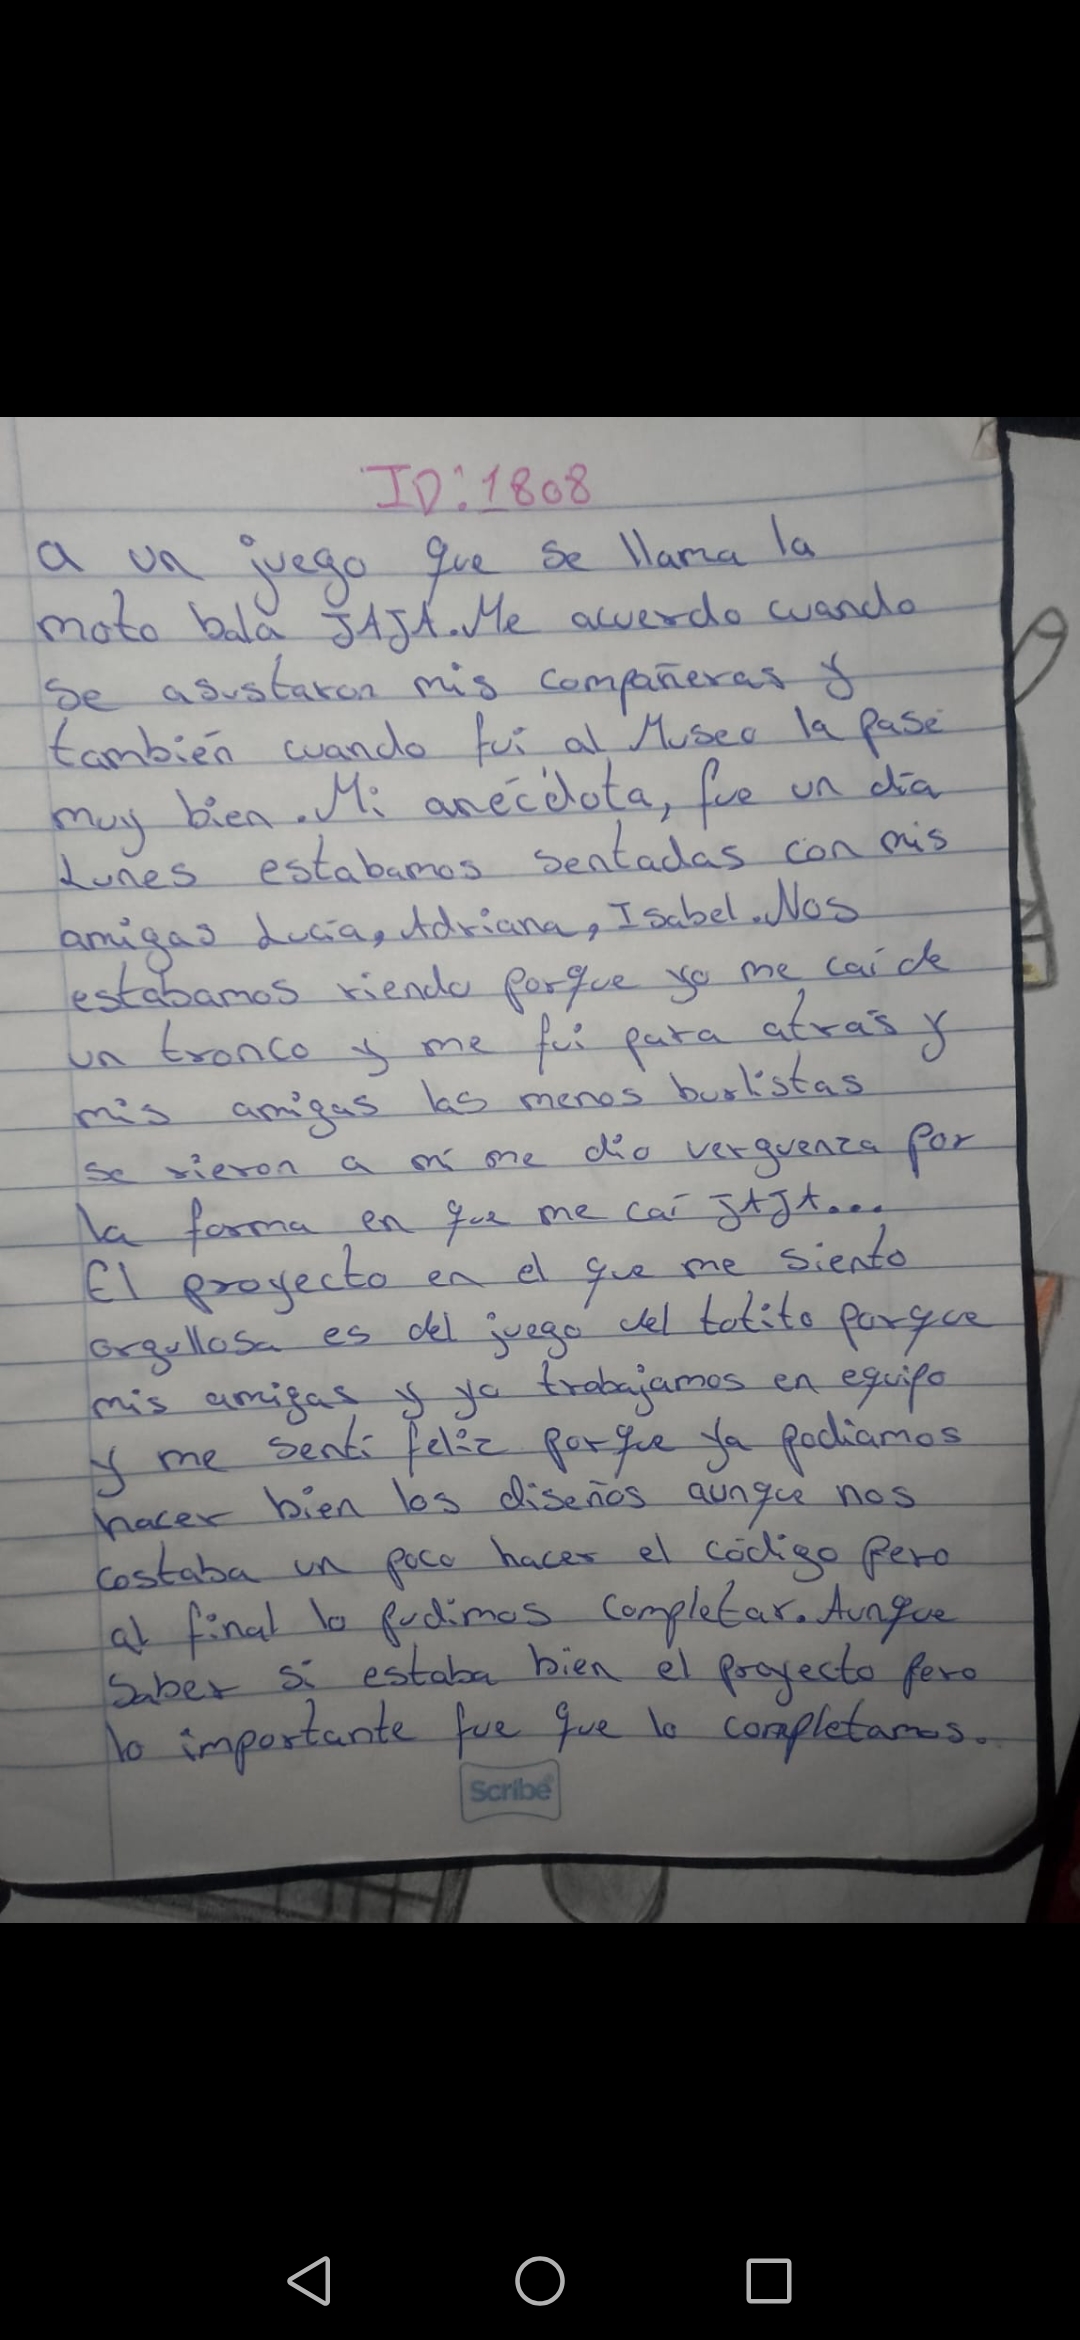 ID: 1808
a un juego que se llama la
moto bala JAJA. Me acuerdo cuando
se asustaron mis compañeras y
también cuando fui al Museo la pasé
muy bien. Mi anécdota, fue un día
Lunes estabamos sentadas con mis
amigas Lucía, Adriana, Isabel. Nos
estabamos riendo porque yo me caí de
un tronco y me fui para atrás y
mis amigas las menos burlistas
se rieron a mí me dio verguenza por
la forma en que me caí JAJA...
El proyecto en el que me siento
orgullosa es del juego del totito porque
mis amigas y yo trabajamos en equipo
y me sentí feliz porque ya podiamos
hacer bien los diseños aunque nos
costaba un poco hacer el código pero
al final lo pudimos completar. Aunque
Saber si estaba bien el proyecto pero
lo importante fue que lo completamos.
Scribe